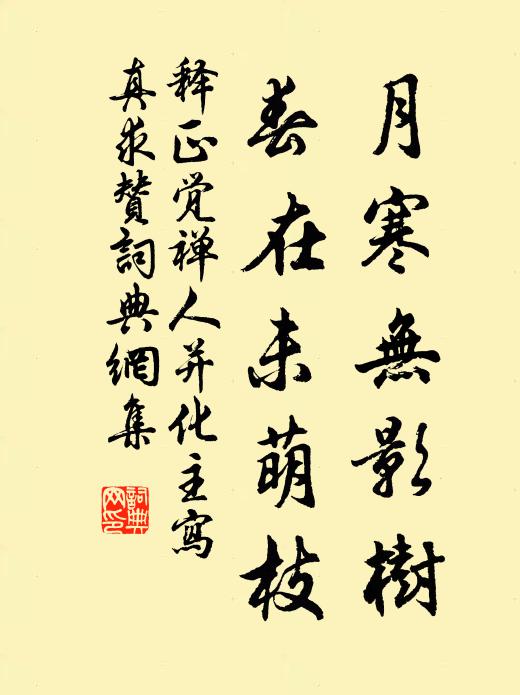 月寒無影樹
春在未萌枝
释正觉禅人并化主寫
真求贊詞典網集
詞典网印